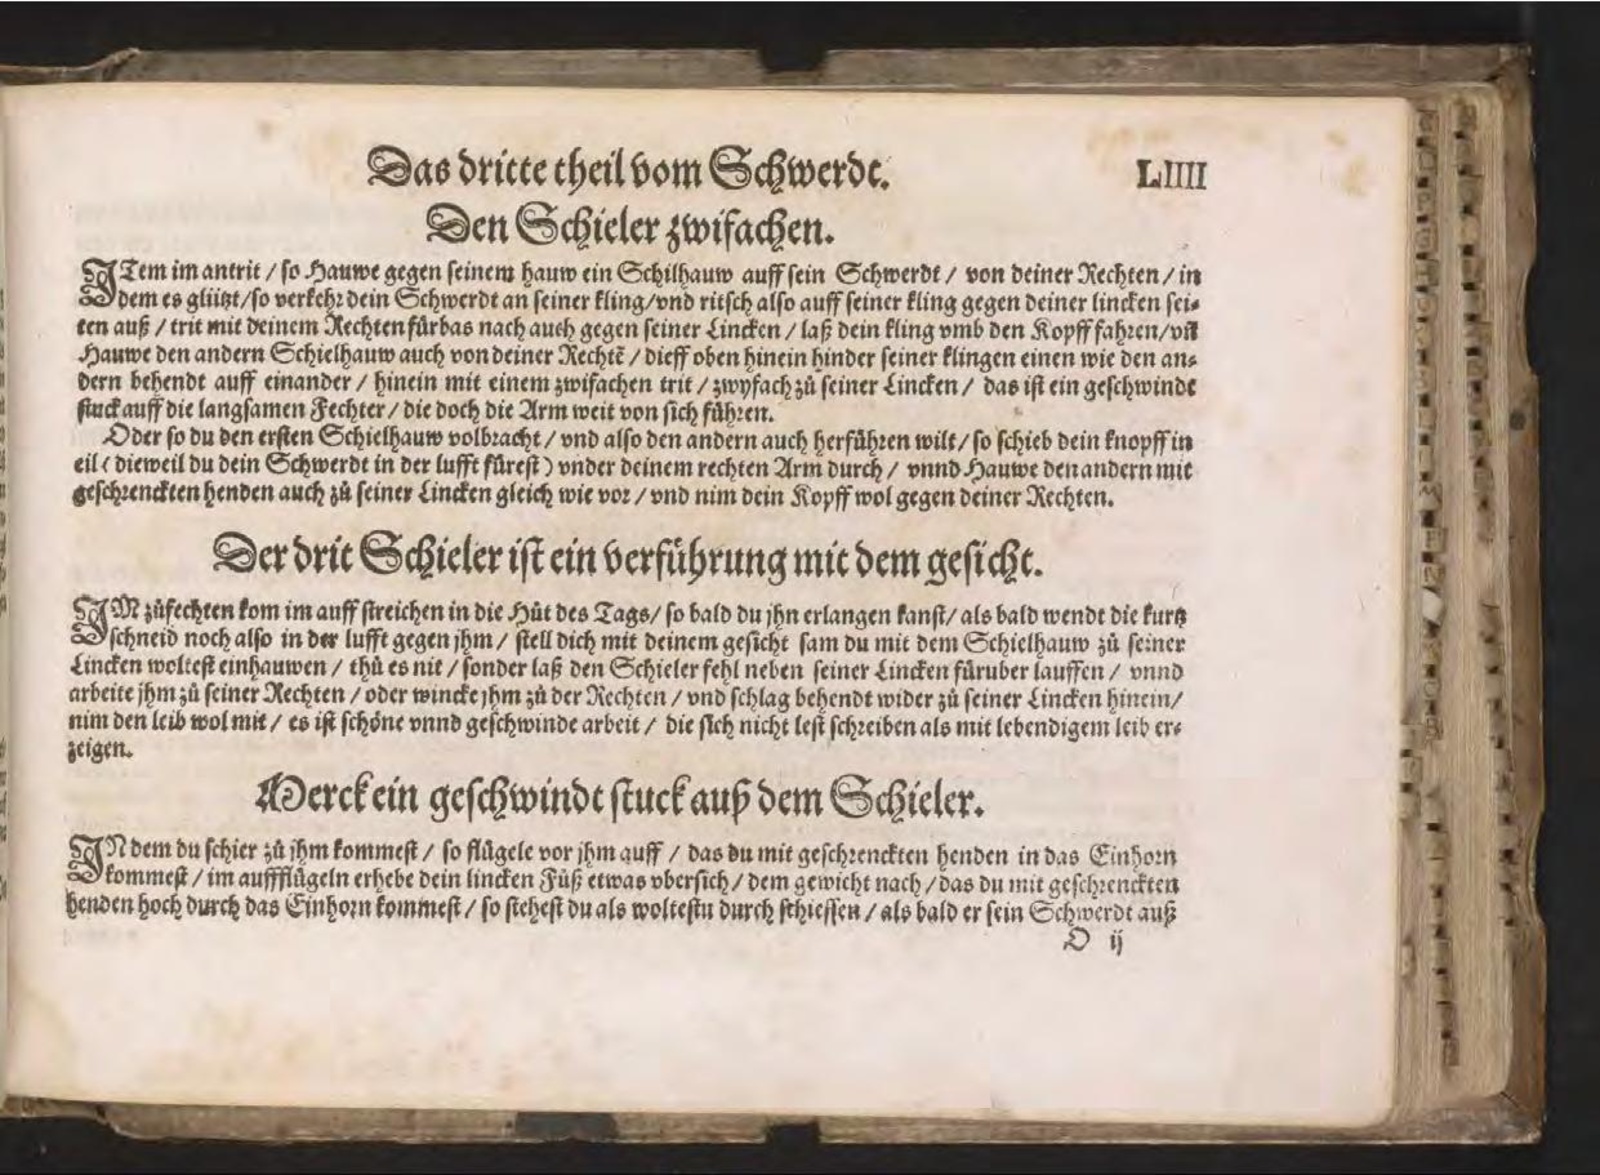 Das dritte theil vom Schwerdt. LIIII
Den Schieler zwifachen.
ITem im antrit / so Hauwe gegen seinem hauw ein Schilhauw auff sein Schwerdt / von deiner Rechten / in
dem es glützt / so verkehr dein Schwerdt an seiner kling / vnd ritsch also auff seiner kling gegen deiner lincken sei-
ten auß / trit mit deinem Rechten fürbas nach auch gegen seiner Lincken / laß dein kling vmb den Kopff fahren / vñ
Hauwe den andern Schielhauw auch von deiner Rechtẽ / dieff oben hinein hinder seiner klingen einen wie den an-
dern behendt auff einander / hinein mit einem zwifachen trit / zwyfach zů seiner Lincken / das ist ein geschwindt
stuck auff die langsamen Fechter / die doch die Arm weit von sich führen.
Oder so du den ersten Schielhauw volbracht / vnd also den andern auch herführen wilt / so schieb dein knopff in
eil ( dieweil du dein Schwerdt in der lufft fürest ) vnder deinem rechten Arm durch / vnnd Hauwe den andern mit
geschrenckten henden auch zů seiner Lincken gleich wie vor / vnd nim dein Kopff wol gegen deiner Rechten.
Der drit Schieler ist ein verführung mit dem gesicht.
IM zůfechten kom im auff streichen in die Hůt des Tags / so bald du jhn erlangen kanst / als bald wendt die kurtz
schneid noch also in der lufft gegen jhm / stell dich mit deinem gesicht sam du mit dem Schielhauw zů seiner
Lincken woltest einhauwen / thů es nit / sonder laß den Schieler fehl neben seiner Lincken füruber lauffen / vnnd
arbeite jhm zů seiner Rechten / oder wincke jhm zů der Rechten / vnd schlag behendt wider zů seiner Lincken hinein /
nim den leib wol mit / es ist schöne vnnd geschwinde arbeit / die sich nicht lest schreiben als mit lebendigem leib er-
zeigen.
Merck ein geschwindt stuck auß dem Schieler.
IN dem du schier zů jhm kommest / so flügele vor jhm auff / das du mit geschrenckten henden in das Einhorn
kommest / im auffflügeln erhebe dein lincken Fůß etwas vbersich / dem gewicht nach / das du mit geschrenckten
henden hoch durch das Einhorn kommest / so stehest du als woltestu durch schiessen / als bald er sein Schwerdt auß
O ij